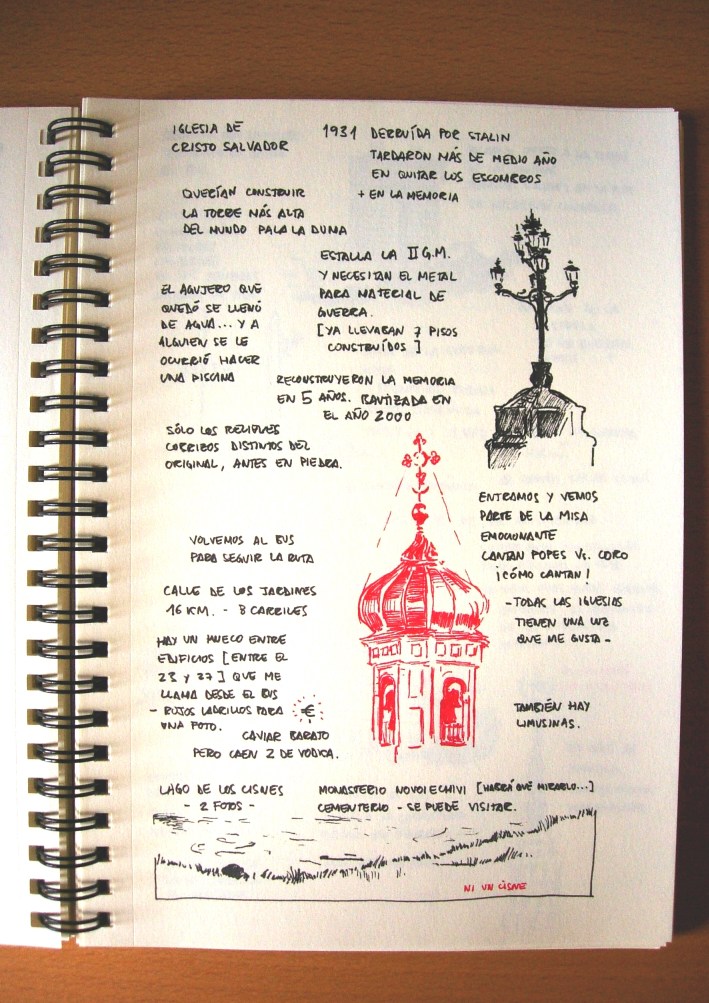 IGLESIA DE
CRISTO SALVADOR
1931 DERRUÍDA POR STALIN
TARDARON MÁS DE MEDIO AÑO
EN QUITAR LOS ESCOMBROS
+ EN LA MEMORIA
QUERÍAN CONSTRUIR
LA TORRE MÁS ALTA
DEL MUNDO PALA LA DUMA
ESTALLA LA II G.M.
Y NECESITAN EL METAL
PARA MATERIAL DE
GUERRA.
[YA LLEVABAN 7 PISOS
CONSTRUÍDOS]
EL AGUJERO QUE
QUEDÓ SE LLENÓ
DE AGUA... Y A
ALGUIEN SE LE
OCURRIÓ HACER
UNA PISCINA
RECONSTRUYERON LA MEMORIA
EN 5 AÑOS. BAUTIZADA EN
EL AÑO 2000
SÓLO LOS RELIEVES
COBRIZOS DISTINTOS DEL
ORIGINAL, ANTES EN PIEDRA.
ENTRAMOS Y VEMOS
PARTE DE LA MISA
EMOCIONANTE
CANTAN POPES Vs. CORO
¡CÓMO CANTAN!
- TODAS LAS IGLESIAS
TIENEN UNA LUZ
QUE ME GUSTA -
VOLVEMOS AL BUS
PARA SEGUIR LA RUTA
CALLE DE LOS JARDINES
16 KM. - 8 CARRILES
HAY UN HUECO ENTRE
EDIFICIOS [ENTRE EL
23 y 27] QUE ME
LLAMA DESDE EL BUS
- ROJOS LADRILLOS PARA
UNA FOTO.
€
CAVIAR BARATO
PERO CAEN 2 DE VODKA.
TAMBIÉN HAY
LIMUSINAS.
LAGO DE LOS CISNES
- 2 FOTOS -
MONASTERIO [HABRÁ QUE MIRARLO...]
CEMENTERIO - SE PUEDE VISITAR.
NI UN CISNE